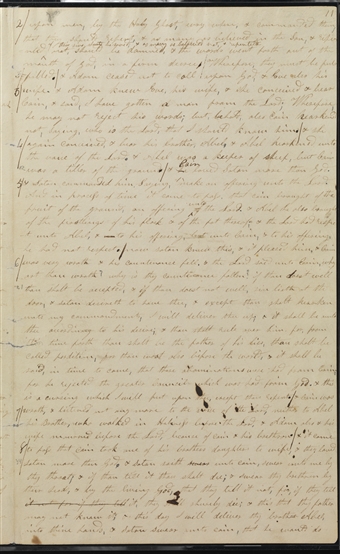 11
2/ upon men, by the Holy Ghost, every where, & commanded them
that they should repent, & as many as believed in the Son, &
& if they
not, should be damned, & the words went forth out of the
mouth of God, in a firm decree, Wherefore they must be ful
filled, & Adam ceased not to call upon God, & Eve also his
3/ wife. & Adam knew Eve, his wife, & she conceived & bear
Cain, & said, I have gotten a man from the Lord, Wherefore
he may not reject his words; but, behold, also Cain hearkened
not, saying, who is the Lord, that I should know him; & she
4/ again conceived, & bear his brother, Abel; & Abel hearkened unto
the voice of the Lord, & Abel was a keeper of sheep, but Cain
was a tiller of the ground, & Cain loved Satan more than God.
5/ & Satan commanded him, saying, Make an offering unto the Lord.
And in process of time it came to pass, that Cain brought of the
fruit of the ground, an offering unto the Lord, & Abel he also brought
of the firstlings of his flock, & of the fat thereof; & the Lord had respect
unto Abel, & to his offering, but unto Cain, & to his offering,
he had not respect. Now Satan knew this, & it pleased him, & Cain
6/ was very wroth, & his countenance fell, & the Lord said unto Cain, why
art thou wroth? why is thy countenance fallen? if thou do well
thou shall be accepted, & if thou doest not well, sin lieth at the
door, & Satan desireth to have thee, & except thou shall hearken
unto my commandments, I will deliver thee up, & it shall be unto
thee according to his desire; & thou shalt rule over him, for from
this time forth thou shall be the father of his lies, thou shall be
called perdition, for thou wast also before the world, & it shall be
said, in time to come, that these abominations was had from Cain,
for he rejected the greater council, which was had from God, & this
is a cursing which I will put upon thee, except thou repent, & Cain was
wroth, & listened not any more to the voice of the Lord, neither to Abel
his brother, who walked in Holiness before the Lord, & Adam also & his
wife mourned before the Lord, because of Cain & his brethren, & it came
to pass that Cain took one of his brothers daughters to wife, & they loved
Satan more than God, & Satan saith unto Cain, swear unto me by
thy throat, & if thou tell it thou shalt die; & swear thy brethren by
their heads, & by the living God, that they tell it not, for if they tell
it, they shall surely die; & this that thy father
may not know it; & this day I will deliver thy brother Abel,
into thine hands, & Satan swear unto Cain, that he would do